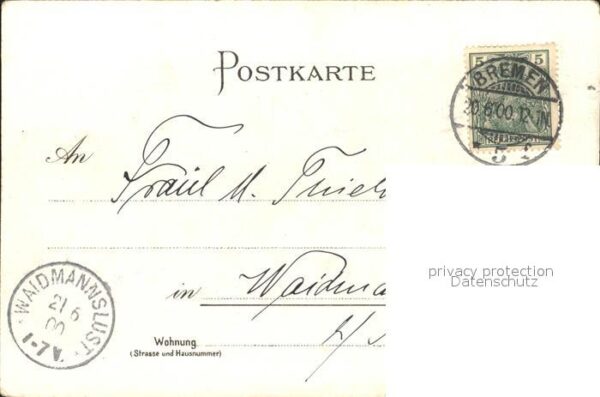 POSTKARTE
5 5
BREMEN
20.6.00.12-1N.
An
Fräul M. Thiel
privacy protection
Datenschutz
in Waidma
WAIDMANNSLUST
21 6
00
1-7V.
Wohnung
(Strasse und Hausnummer)